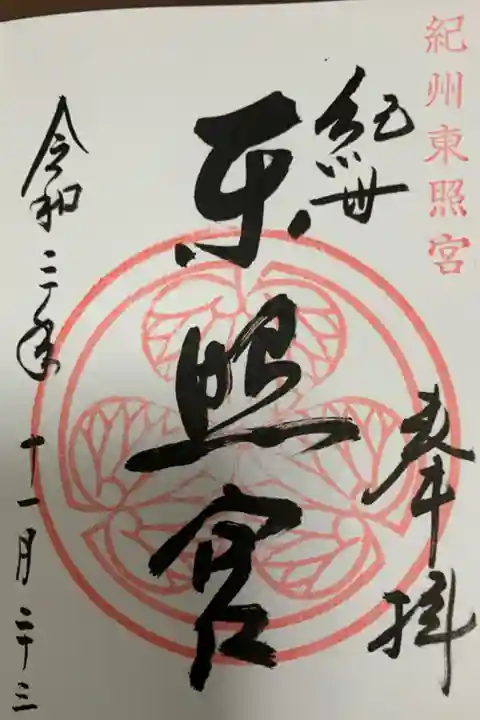 紀州東照宮
奉拝
紀州
東照宮
令和二年十一月二十三